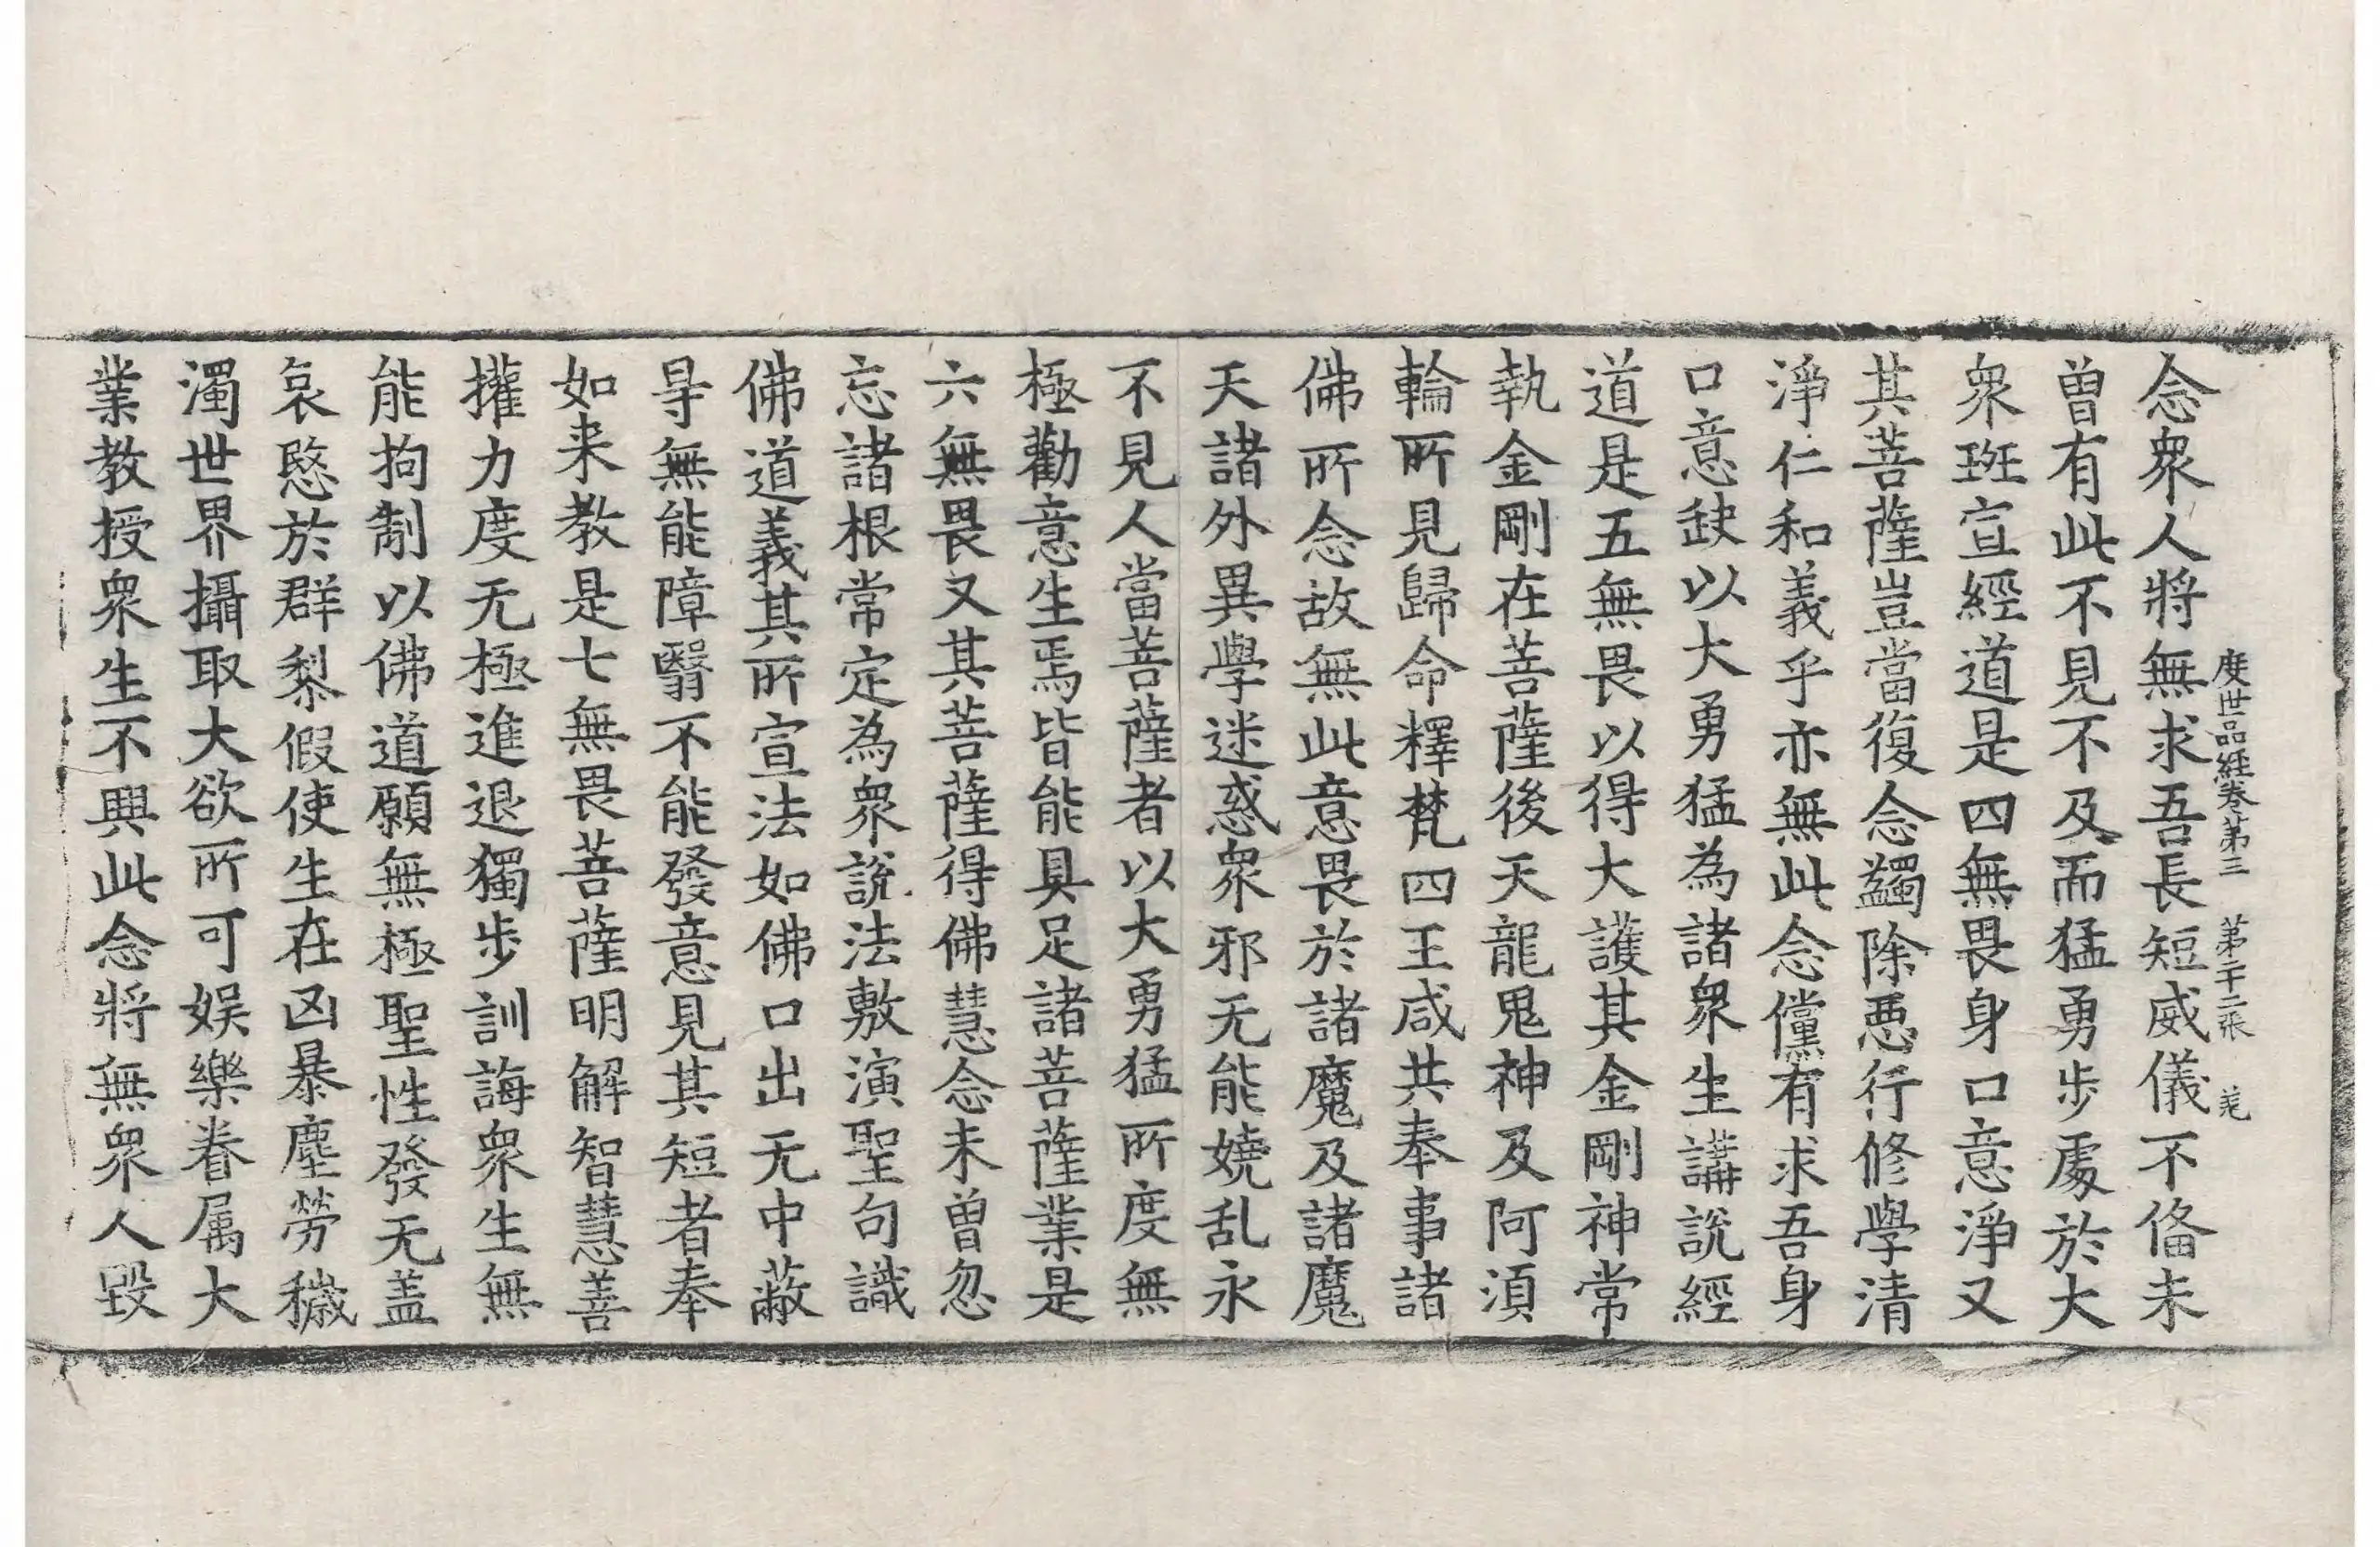 度世品経卷第三 第二十二張 羌
念衆人將無求吾長短威儀不俻未
曽有此不見不及而猛勇步處於大
衆班宣經道是四無畏身口意淨又
其菩薩豈當復念蠲除惡行修學清
淨仁和義乎亦無此念儻有求吾身
口意缺以大勇猛為諸衆生講說經
道是五無畏以得大護其金剛神常
執金剛在菩薩後天龍鬼神及阿湏
輪所見歸命釋梵四王咸共奉事諸
佛所念故無此意畏於諸魔及諸魔
天諸外異學迷惑衆邪无能嬈乱永
不見人當菩薩者以大勇猛所度無
極勸意生焉皆能具足諸菩薩業是
六無畏又其菩薩得佛慧念未曽忽
忘諸根常定為衆說法敷演聖句識
佛道義其所宣法如佛口出无中蔽
㝵無能障翳不能發意見其短者奉
如来教是七無畏菩薩明解智慧善
權力度无極進退獨步訓誨衆生無
能拘制以佛道願無極聖性發无盖
哀愍於群黎假使生在凶暴塵勞穢
濁世界攝取大欲所可娱樂眷属大
業教授衆生不興此念將無衆人毀